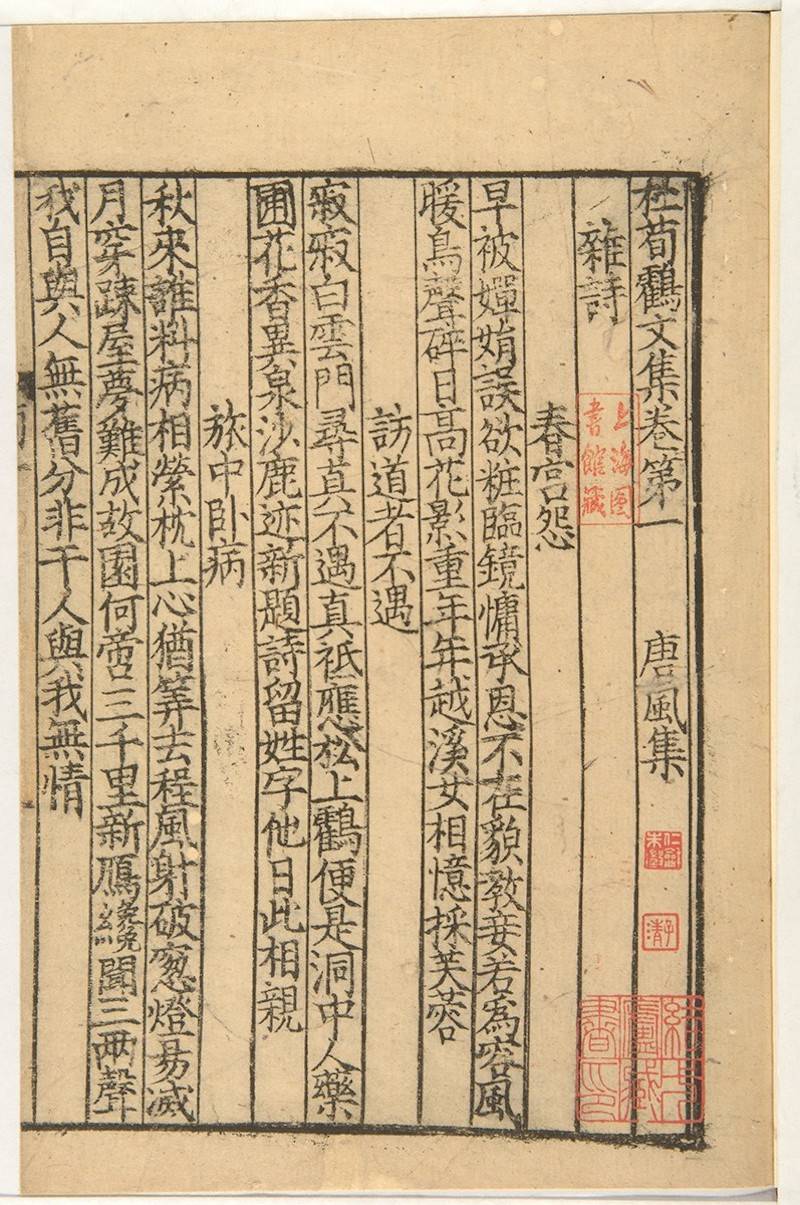 杜荀鶴文集卷第一　唐風集
雜詩
春宫怨
早被嬋娟誤欲粧臨鏡慵承恩不在貌教妾若爲容風
暖鳥聲碎日高花影重年年越溪女相憶採芙蓉
訪道者不遇
寂寂白雲門尋真不遇真袛應松上鶴便是洞中人藥
圃花香異泉沙鹿迹新題詩留姓字他日此相親
旅中卧病
秋來誰料病相縈枕上心猶筭去程風射破窓燈易滅
月穿踈屋夢難成故園何啻三千里新鴈纔聞三兩聲
我自與人無舊分非干人與我無情
上海圖
書館藏
子清